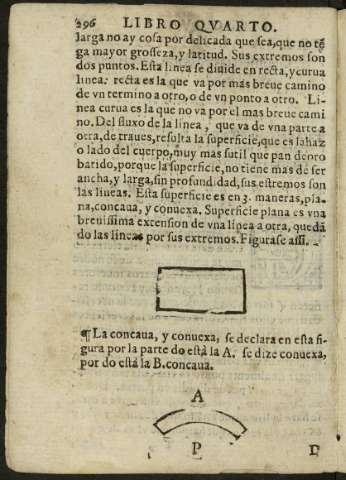 296 LIBRO QVARTO.
larga no ay cosa por delicada que sea, que no tẽ
ga mayor grosseza, y latitud. Sus extremos son
dos puntos. Esta linea se diuide en recta, y curua
linea: recta es la que va por mas breue camino
de vn termino a otro, o de vn ponto a otro. Li-
nea curua es la que no va por el mas breue cami
no. Del fluxo de la linea, que va de vna parte a
otra, de traues, resulta la superficie, que es la haz
o lado del cuerpo, muy mas sutil que pan de oro
batido, porque la superficie, no tiene mas de ser
ancha, y larga, sin profundidad, sus estremos son
las lineas. Esta superficie es en 3. maneras, pla-
na, concaua, y conuexa. Superficie plana es vna
breuissima extension de vna linea a otra, quedã
do las lineas por sus extremos. Figurase assi.
¶ La concaua, y conuexa, se declara en esta fi-
gura por la parte do està la A. se dize conuexa,
por do està la B. concaua.
A
P